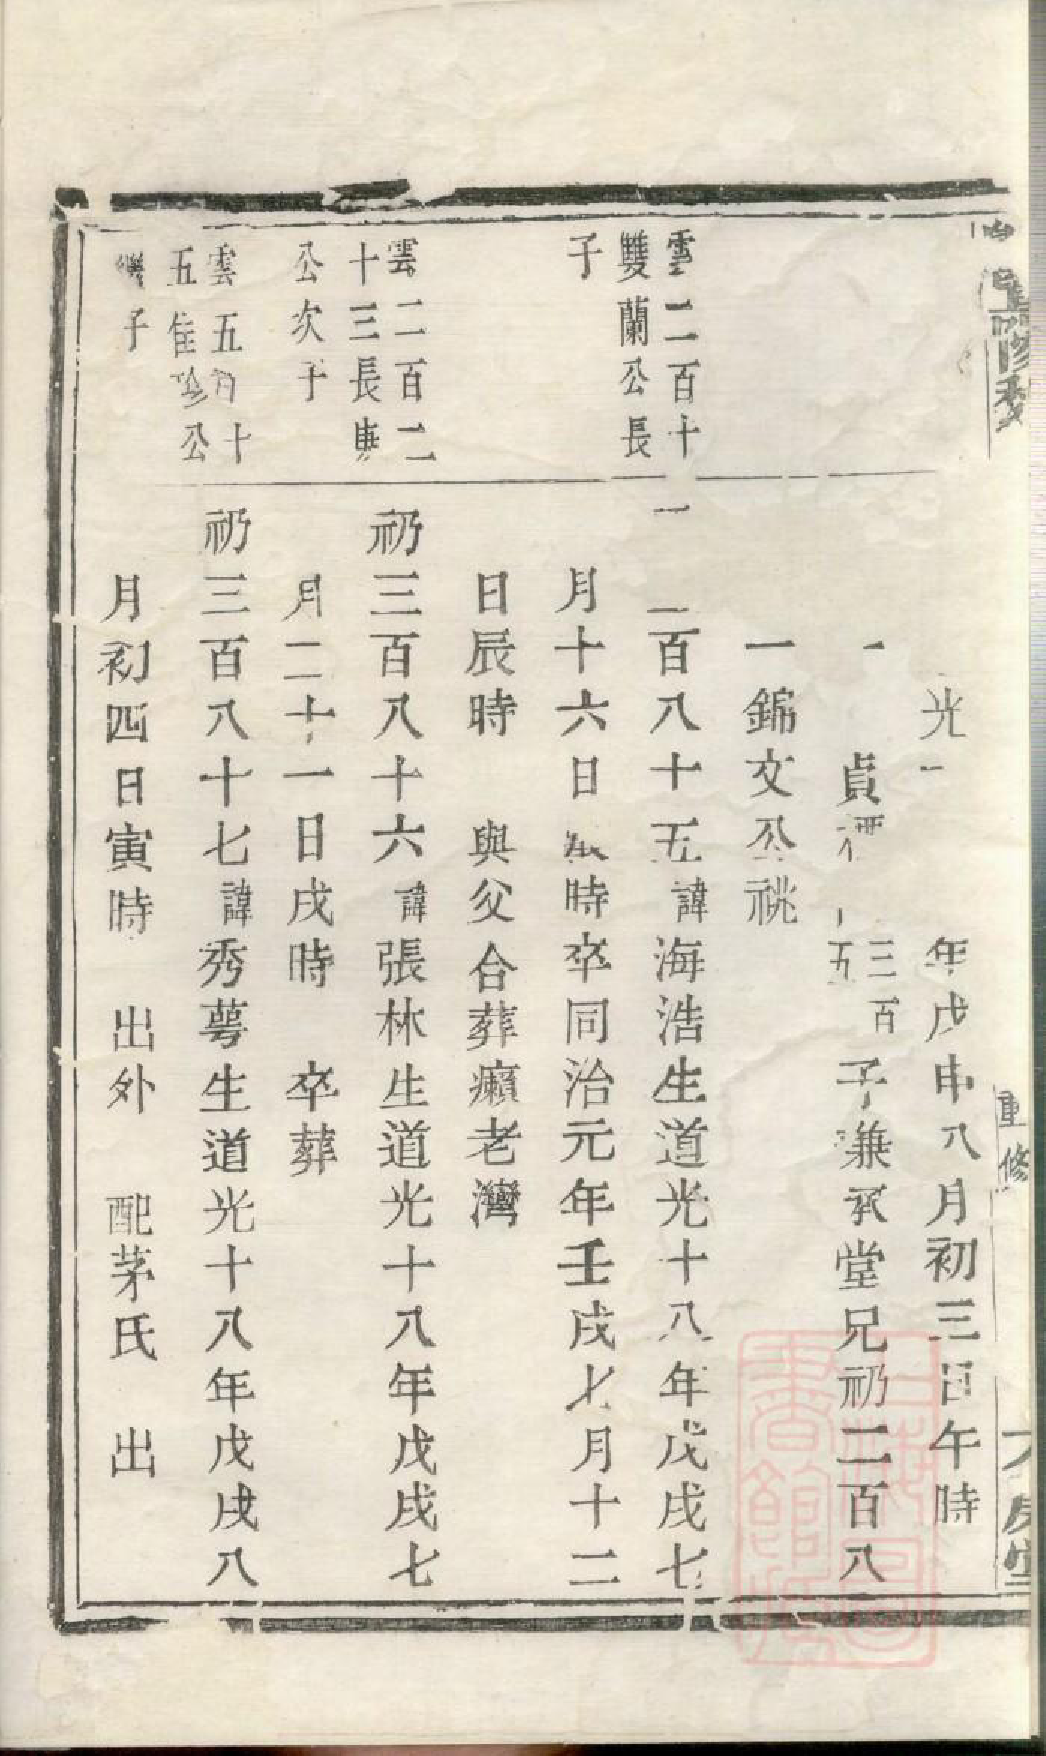 光
年戊申八月初三日午時
貞
三百
五
子兼承堂兄礽二百八
一錦文公祧
雲二百十
雙蘭公長
子
百八十五諱海浩生道光十八年戊戌七
月十六日
時卒同治元年壬戌七月十二
日辰時 與父合葬癩老灣
雲二百二
十三長庚
公次子
礽三百八十六諱張林生道光十八年戊戌七
月二十一日戌時 卒葬
雲五百十
五佳珍公
子
礽三百八十七諱秀蕚生道光十八年戊戌八
月初四日寅時 出外 配茅氏 出
重修